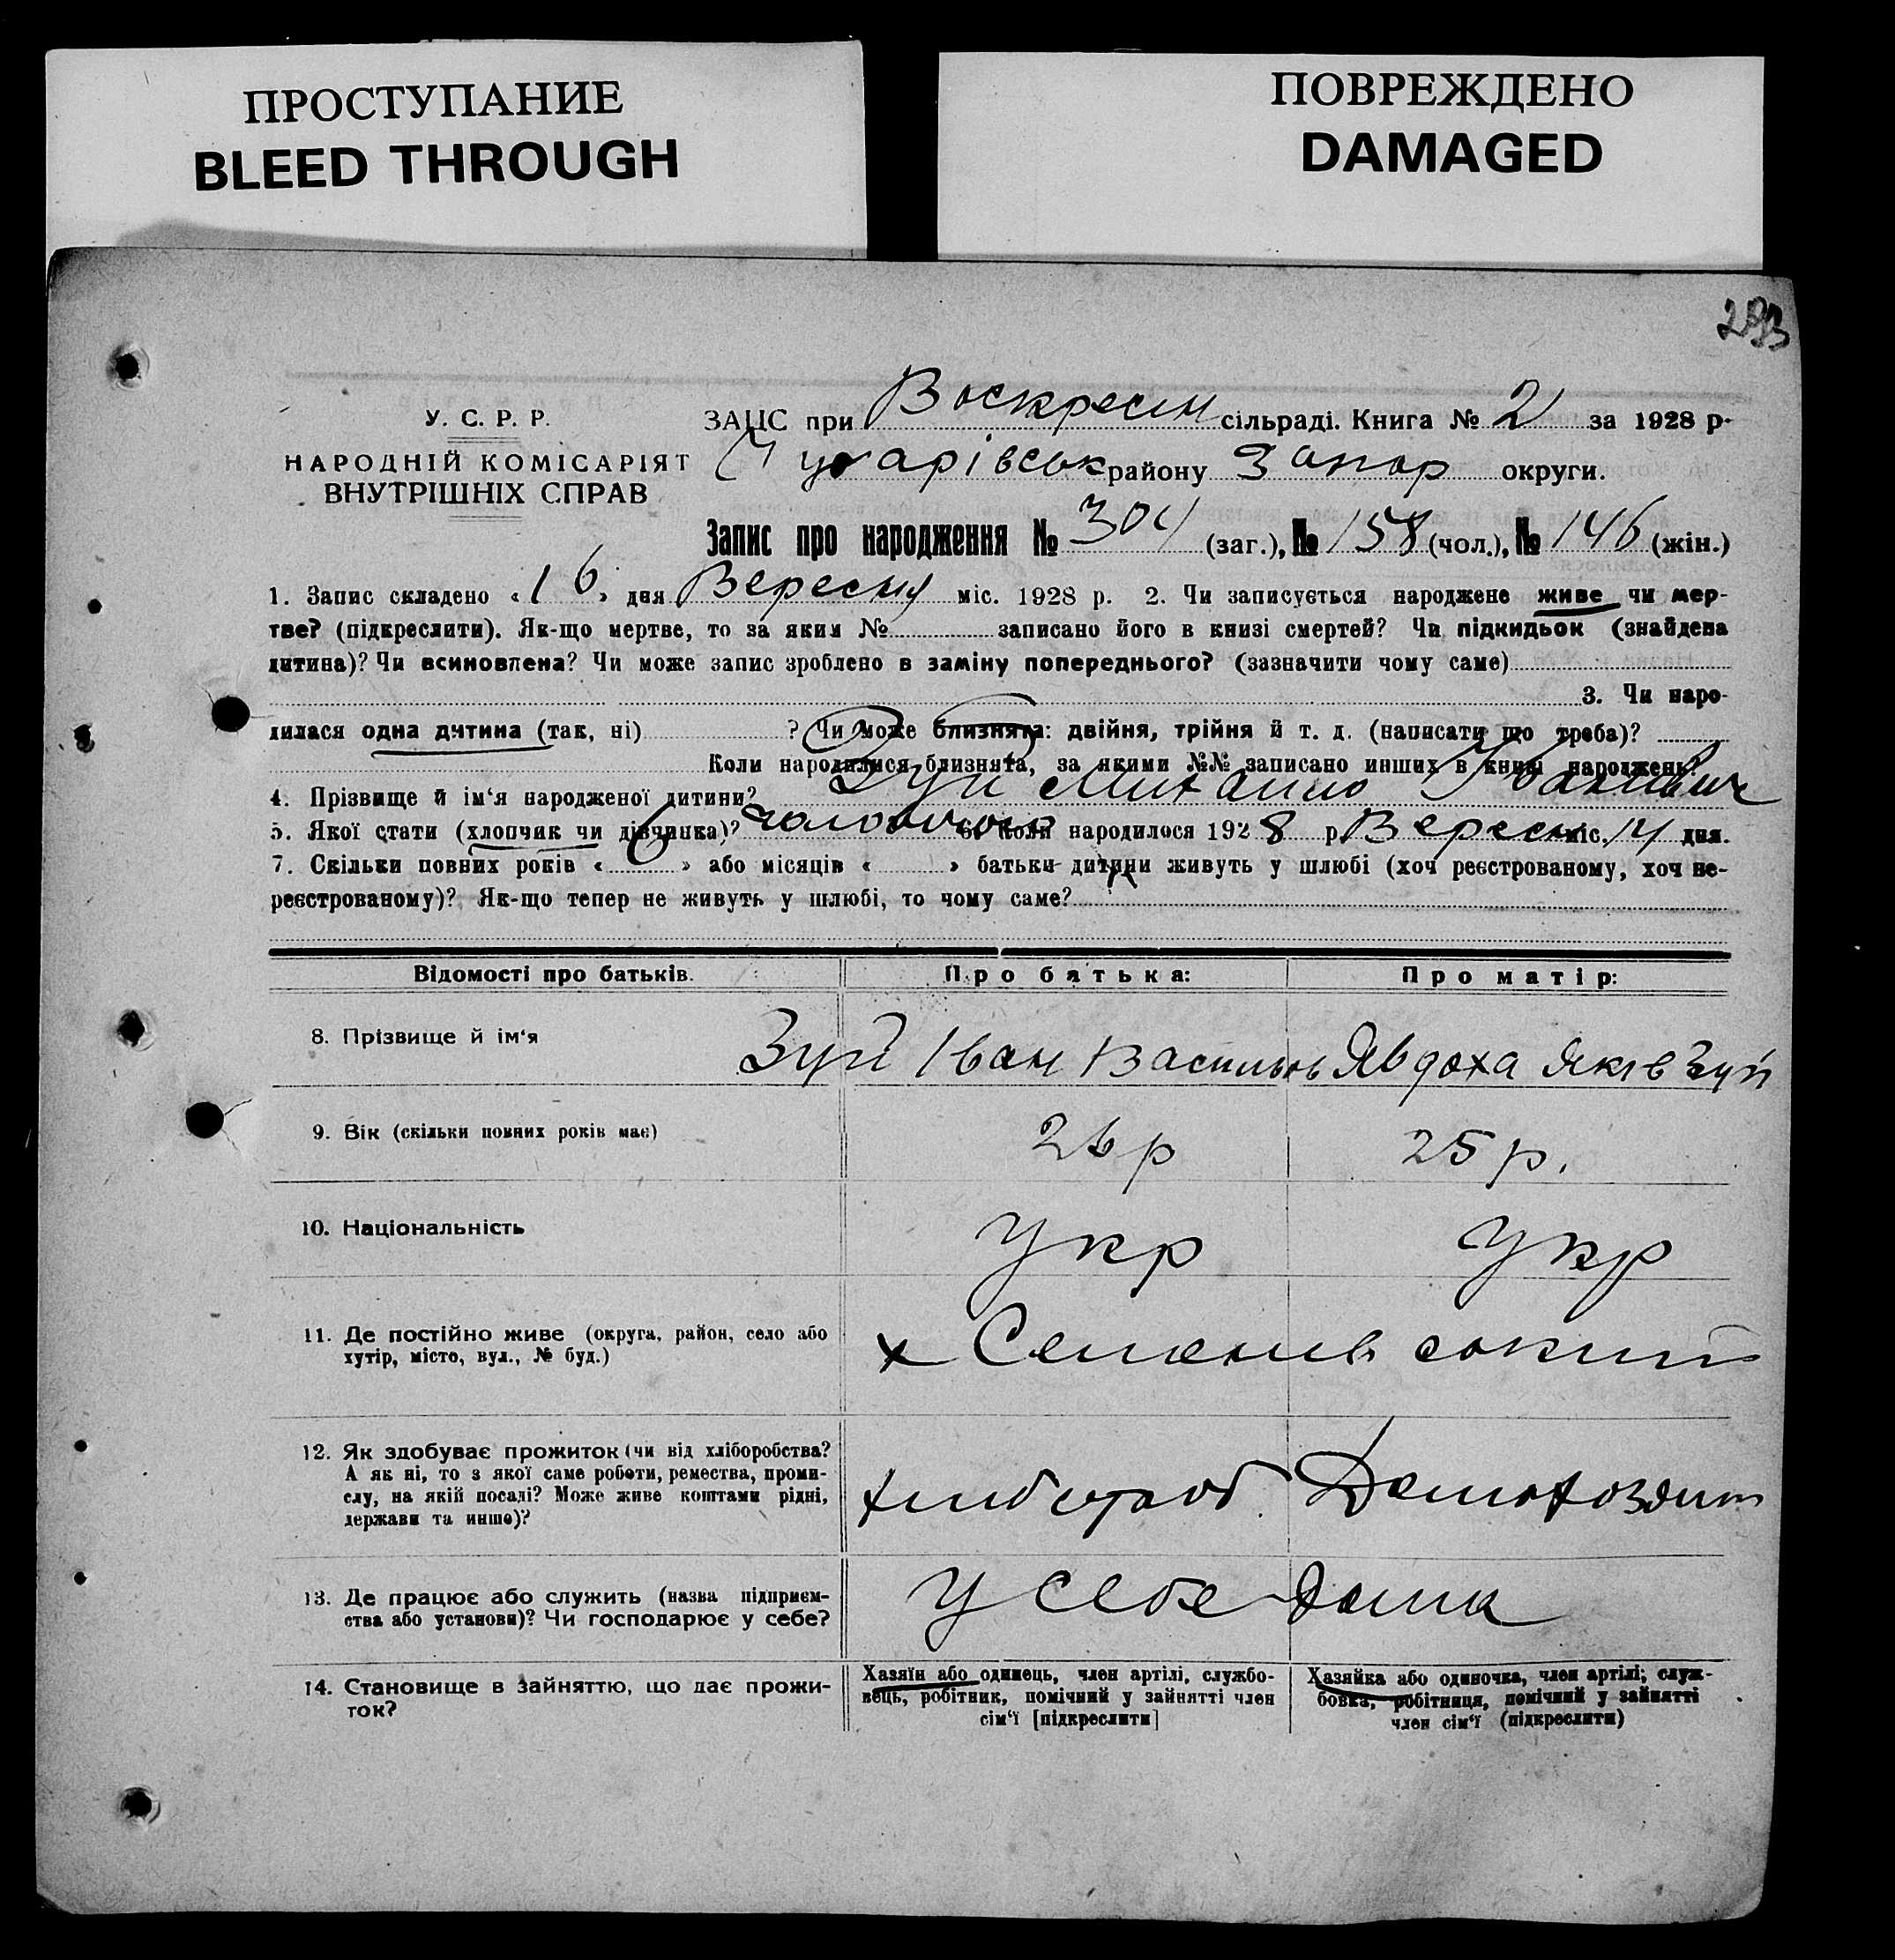 ПРОСТУПАНИЕ
BLEED THROUGH
ПОВРЕЖДЕНО
DAMAGED
293
У. С. Р. Р.
НАРОДНІЙ КОМІСАРІЯТ
ВНУТРІШНІХ СПРАВ
ЗАЦС при Воскресен сільраді. Книга № 2 за 1928 р.
Чубарівськ району Запор округи.
Запис про народження № 304 (заг.), № 158 (чол.), № 146 (жін.)
1. Запис складено « 16 » дня Вересня міс. 1928 р. 2. Чи записується народжене живе чи мер-
тве? (підкреслити). Як-що мертве, то за яким № записано його в книзі смертей? Чи підкидьок (знайдена
дитина)? Чи всиновлена? Чи може запис зроблено в заміну попереднього? (зазначити чому саме)
3. Чи наро-
дилася одна дитина (так, ні) ? Чи може близнята: двійня, трійня й т. д. (написати що треба)?
Коли народилися близнята, за якими №№ записано инших в книзі народжень?
4. Прізвище й ім‘я народженої дитини? Зуй Михайло Іванович
5. Якої стати (хлопчик чи дівчинка)? чоловічої 6. Коли народилося 1928 р. Вересня міс. 14 дня.
7. Скільки повних років « 6 » або місяців « » батьки дитини живуть у шлюбі (хоч реєстрованому, хоч не-
реєстрованому)? Як-що тепер не живуть у шлюбі, то чому саме?
Відомості про батьків. Про батька: Про матір:
8. Прізвище й ім‘я Зуй Іван Васильов Явдоха Яків Зуй
9. Вік (скільки повних років має) 26 р 25 р.
10. Національність Укр Укр
11. Де постійно живе (округа, район, село або
хутір, місто, вул., № буд.) х Семенивський
12. Як здобуває прожиток (чи від хліборобства?
А як ні, то з якої саме роботи, ремества, проми-
слу, на якій посаді? Може живе коштами рідні,
держави та инше)? хлибороб Домохозяй
13. Де працює або служить (назва підприєм-
ства або установи)? Чи господарює у себе? У себе дома
14. Становище в зайняттю, що дає прожи-
ток?
Хазяїн або одинець, член артілі, службо-
вець, робітник, помічний у зайнятті член
сім‘ї [підкреслити]
Хазяйка або одиночка, член артілі; служ-
бовка, робітниця, помічний у зайнятті
член сім‘ї (підкреслити)